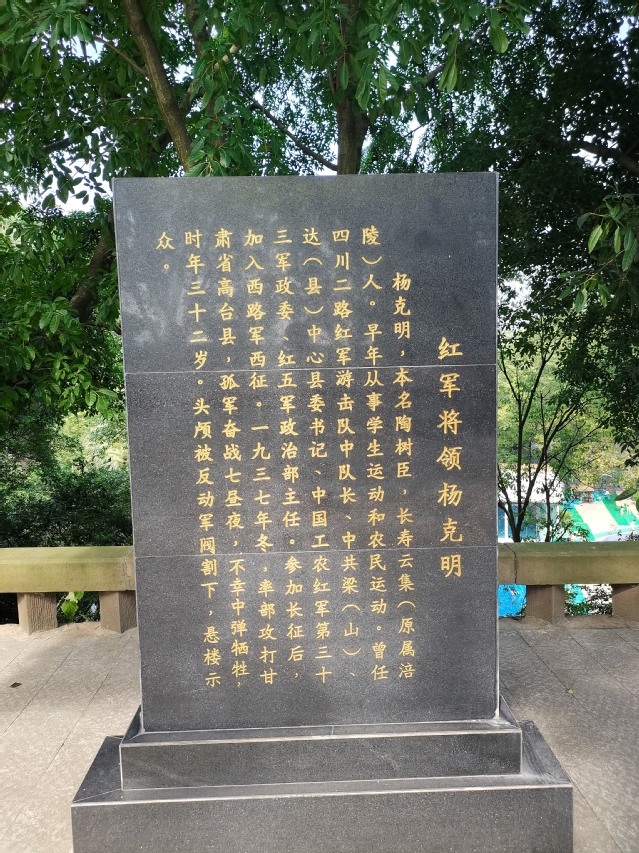 红军将领杨克明
杨克明，本名陶树臣，长寿云集（原属涪
陵）人。早年从事学生运动和农民运动。曾任
四川二路红军游击队中队长、中共梁（山）、
达（县）中心县委书记、中国工农红军第三十
三军政委、红五军政治部主任。参加长征后，
加入西路军西征。一九三七年冬，率部攻打甘
肃省高台县，孤军奋战七昼夜，不幸中弹牺牲，
时年三十二岁。头颅被反动军阀割下，悬楼示
众。